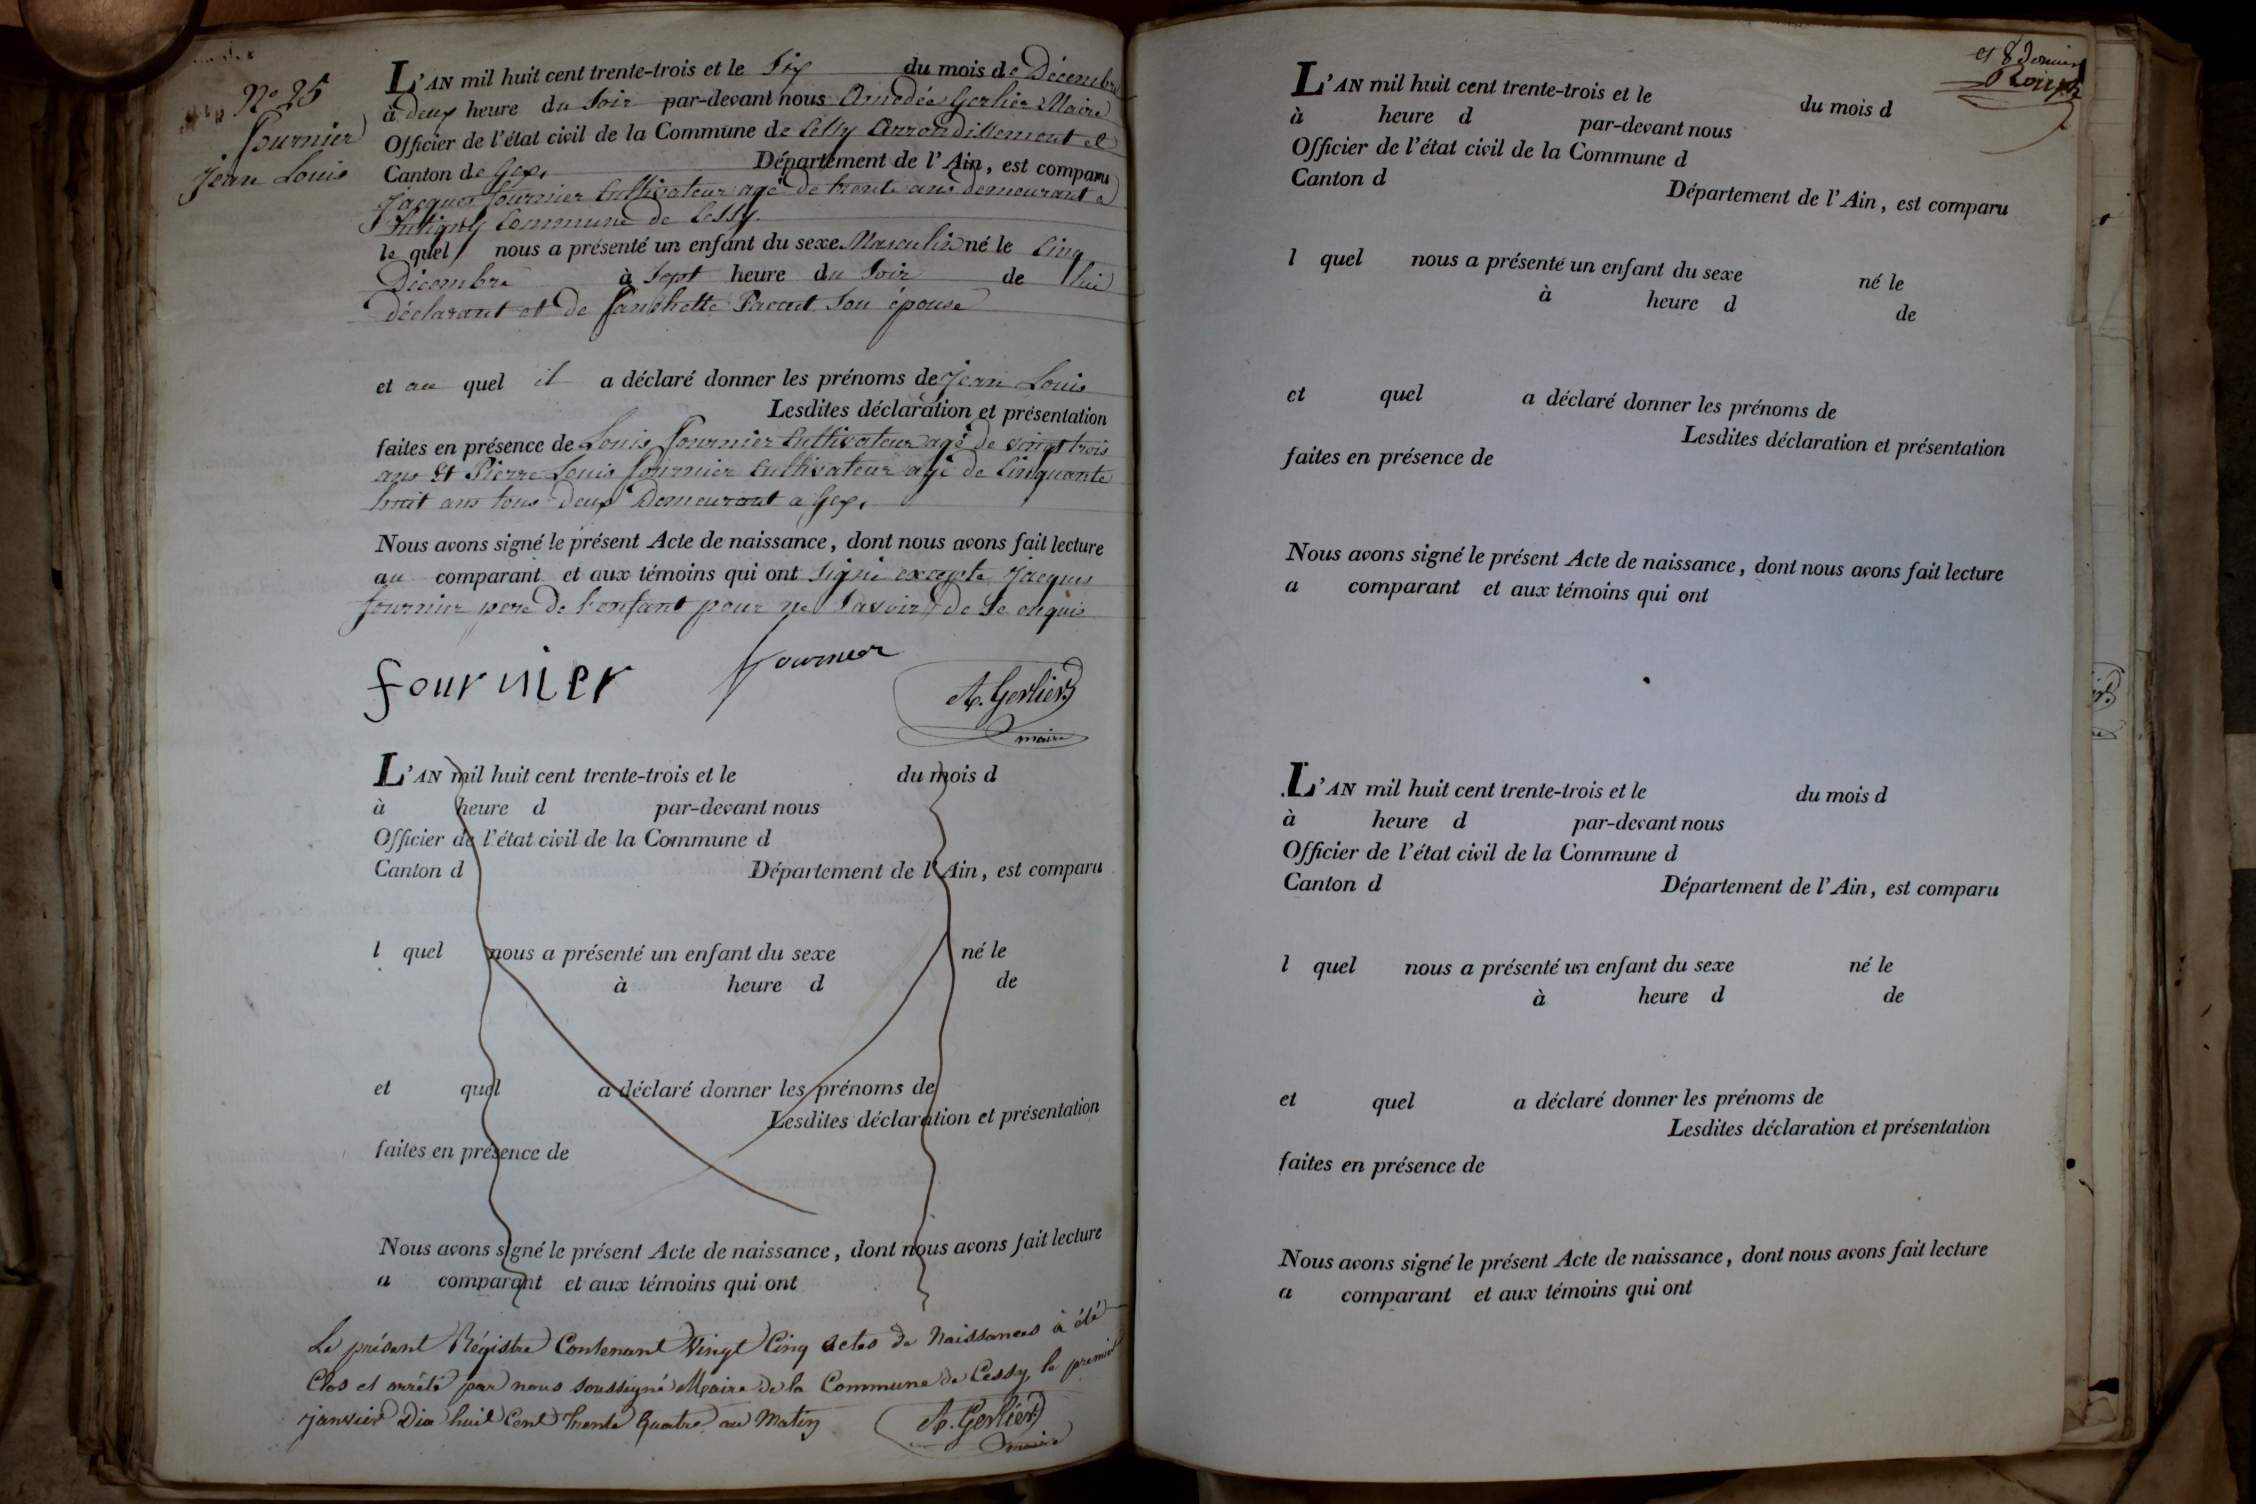 N° 25
fournier
Jean Louis
L'AN mil huit cent trente-trois et le Six du mois de Décembre
à deux heure du Soir par-devant nous Amedée Gerlier Maire
Officier de l'état civil de la Commune de Cessy Arrondissement et
Canton de Gex, Département de l'Ain, est comparu
Jacques fournier Cultivateur agé de trente ans demeurant a
Commune de Cessy
le quel nous a présenté un enfant du sexe Masculin né le Cinq
Décembre à Sept heure du Soir de lui
déclarant et de fanchette Son épouse
et au quel il a déclaré donner les prénoms de Jean Louis
Lesdites déclaration et présentation
faites en présence de Louis fournier Cultivateur agé de vingt trois
ans et Pierre Louis fournier Cultivateur agé de Cinquante
huit ans tous deux Demeurant a Gex,
Nous avons signé le présent Acte de naissance, dont nous avons fait lecture
au comparant et aux témoins qui ont Signé excepte Jacques
fournier pere de l'enfant pour ne Savoir de Ce enquis
fournier fournier A. Gerlier
maire
L'AN mil huit cent trente-trois et le du mois d
à heure d par-devant nous
Officier de l'état civil de la Commune d
Canton d Département de l'Ain, est comparu
l quel nous a présenté un enfant du sexe né le
à heure d de
et quel a déclaré donner les prénoms de
Lesdites déclaration et présentation
faites en présence de
Nous avons signé le présent Acte de naissance, dont nous avons fait lecture
a comparant et aux témoins qui ont
Le présent Régistre Contenant Vingt Cinq actes de Naissances à été
Clos et arrêté par nous soussigné Maire de la Commune de Cessy, le premier
janvier Dix huit Cent trente Quatre au Matin
A. Gerlier
maire
et dernier
L'AN mil huit cent trente-trois et le du mois d
à heure d par-devant nous
Officier de l'état civil de la Commune d
Canton d Département de l'Ain, est comparu
l quel nous a présenté un enfant du sexe né le
à heure d de
et quel a déclaré donner les prénoms de
Lesdites déclaration et présentation
faites en présence de
Nous avons signé le présent Acte de naissance, dont nous avons fait lecture
a comparant et aux témoins qui ont
L'AN mil huit cent trente-trois et le du mois d
à heure d par-devant nous
Officier de l'état civil de la Commune d
Canton d Département de l'Ain, est comparu
l quel nous a présenté un enfant du sexe né le
à heure d de
et quel a déclaré donner les prénoms de
Lesdites déclaration et présentation
faites en présence de
Nous avons signé le présent Acte de naissance, dont nous avons fait lecture
a comparant et aux témoins qui ont